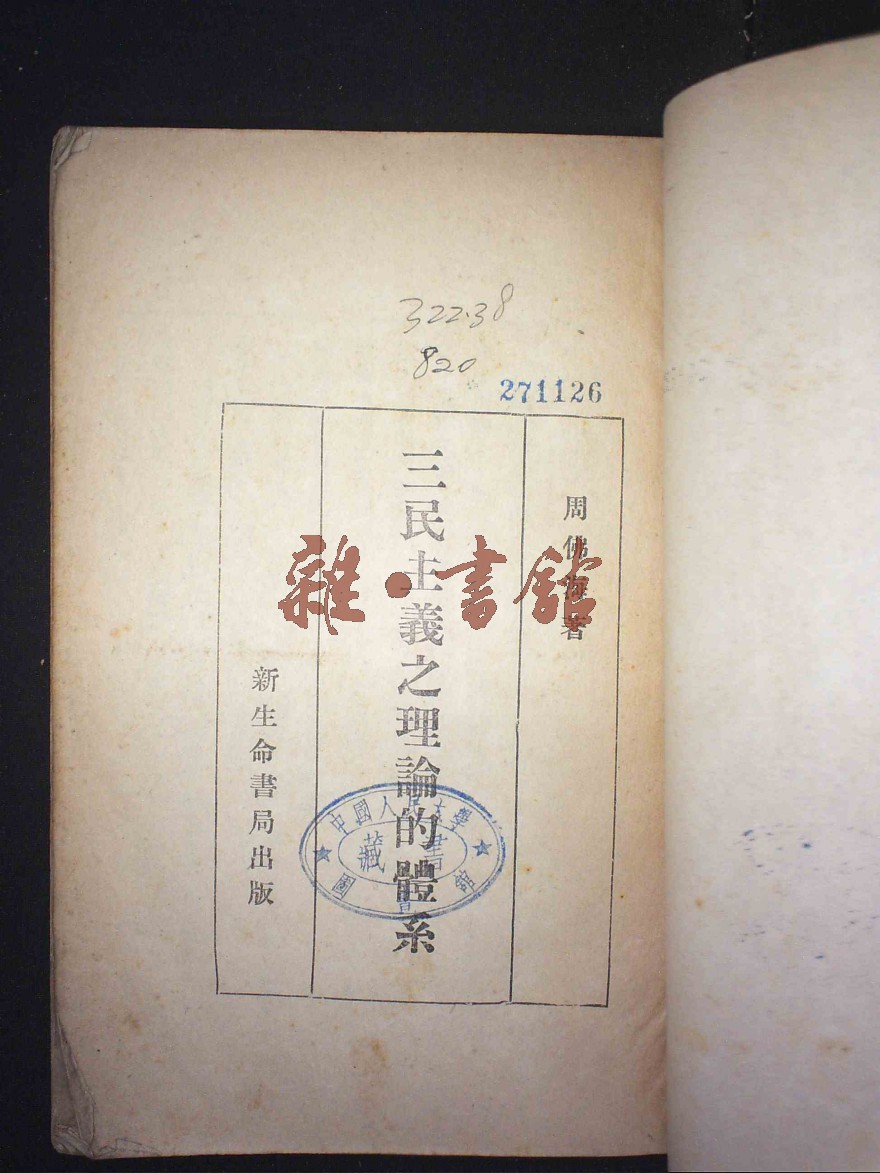 322.38
820
271126
周佛海著
三民主義之理論的體系
新生命書局出版
雜·書館
中國人民大學
藏書
圖書館